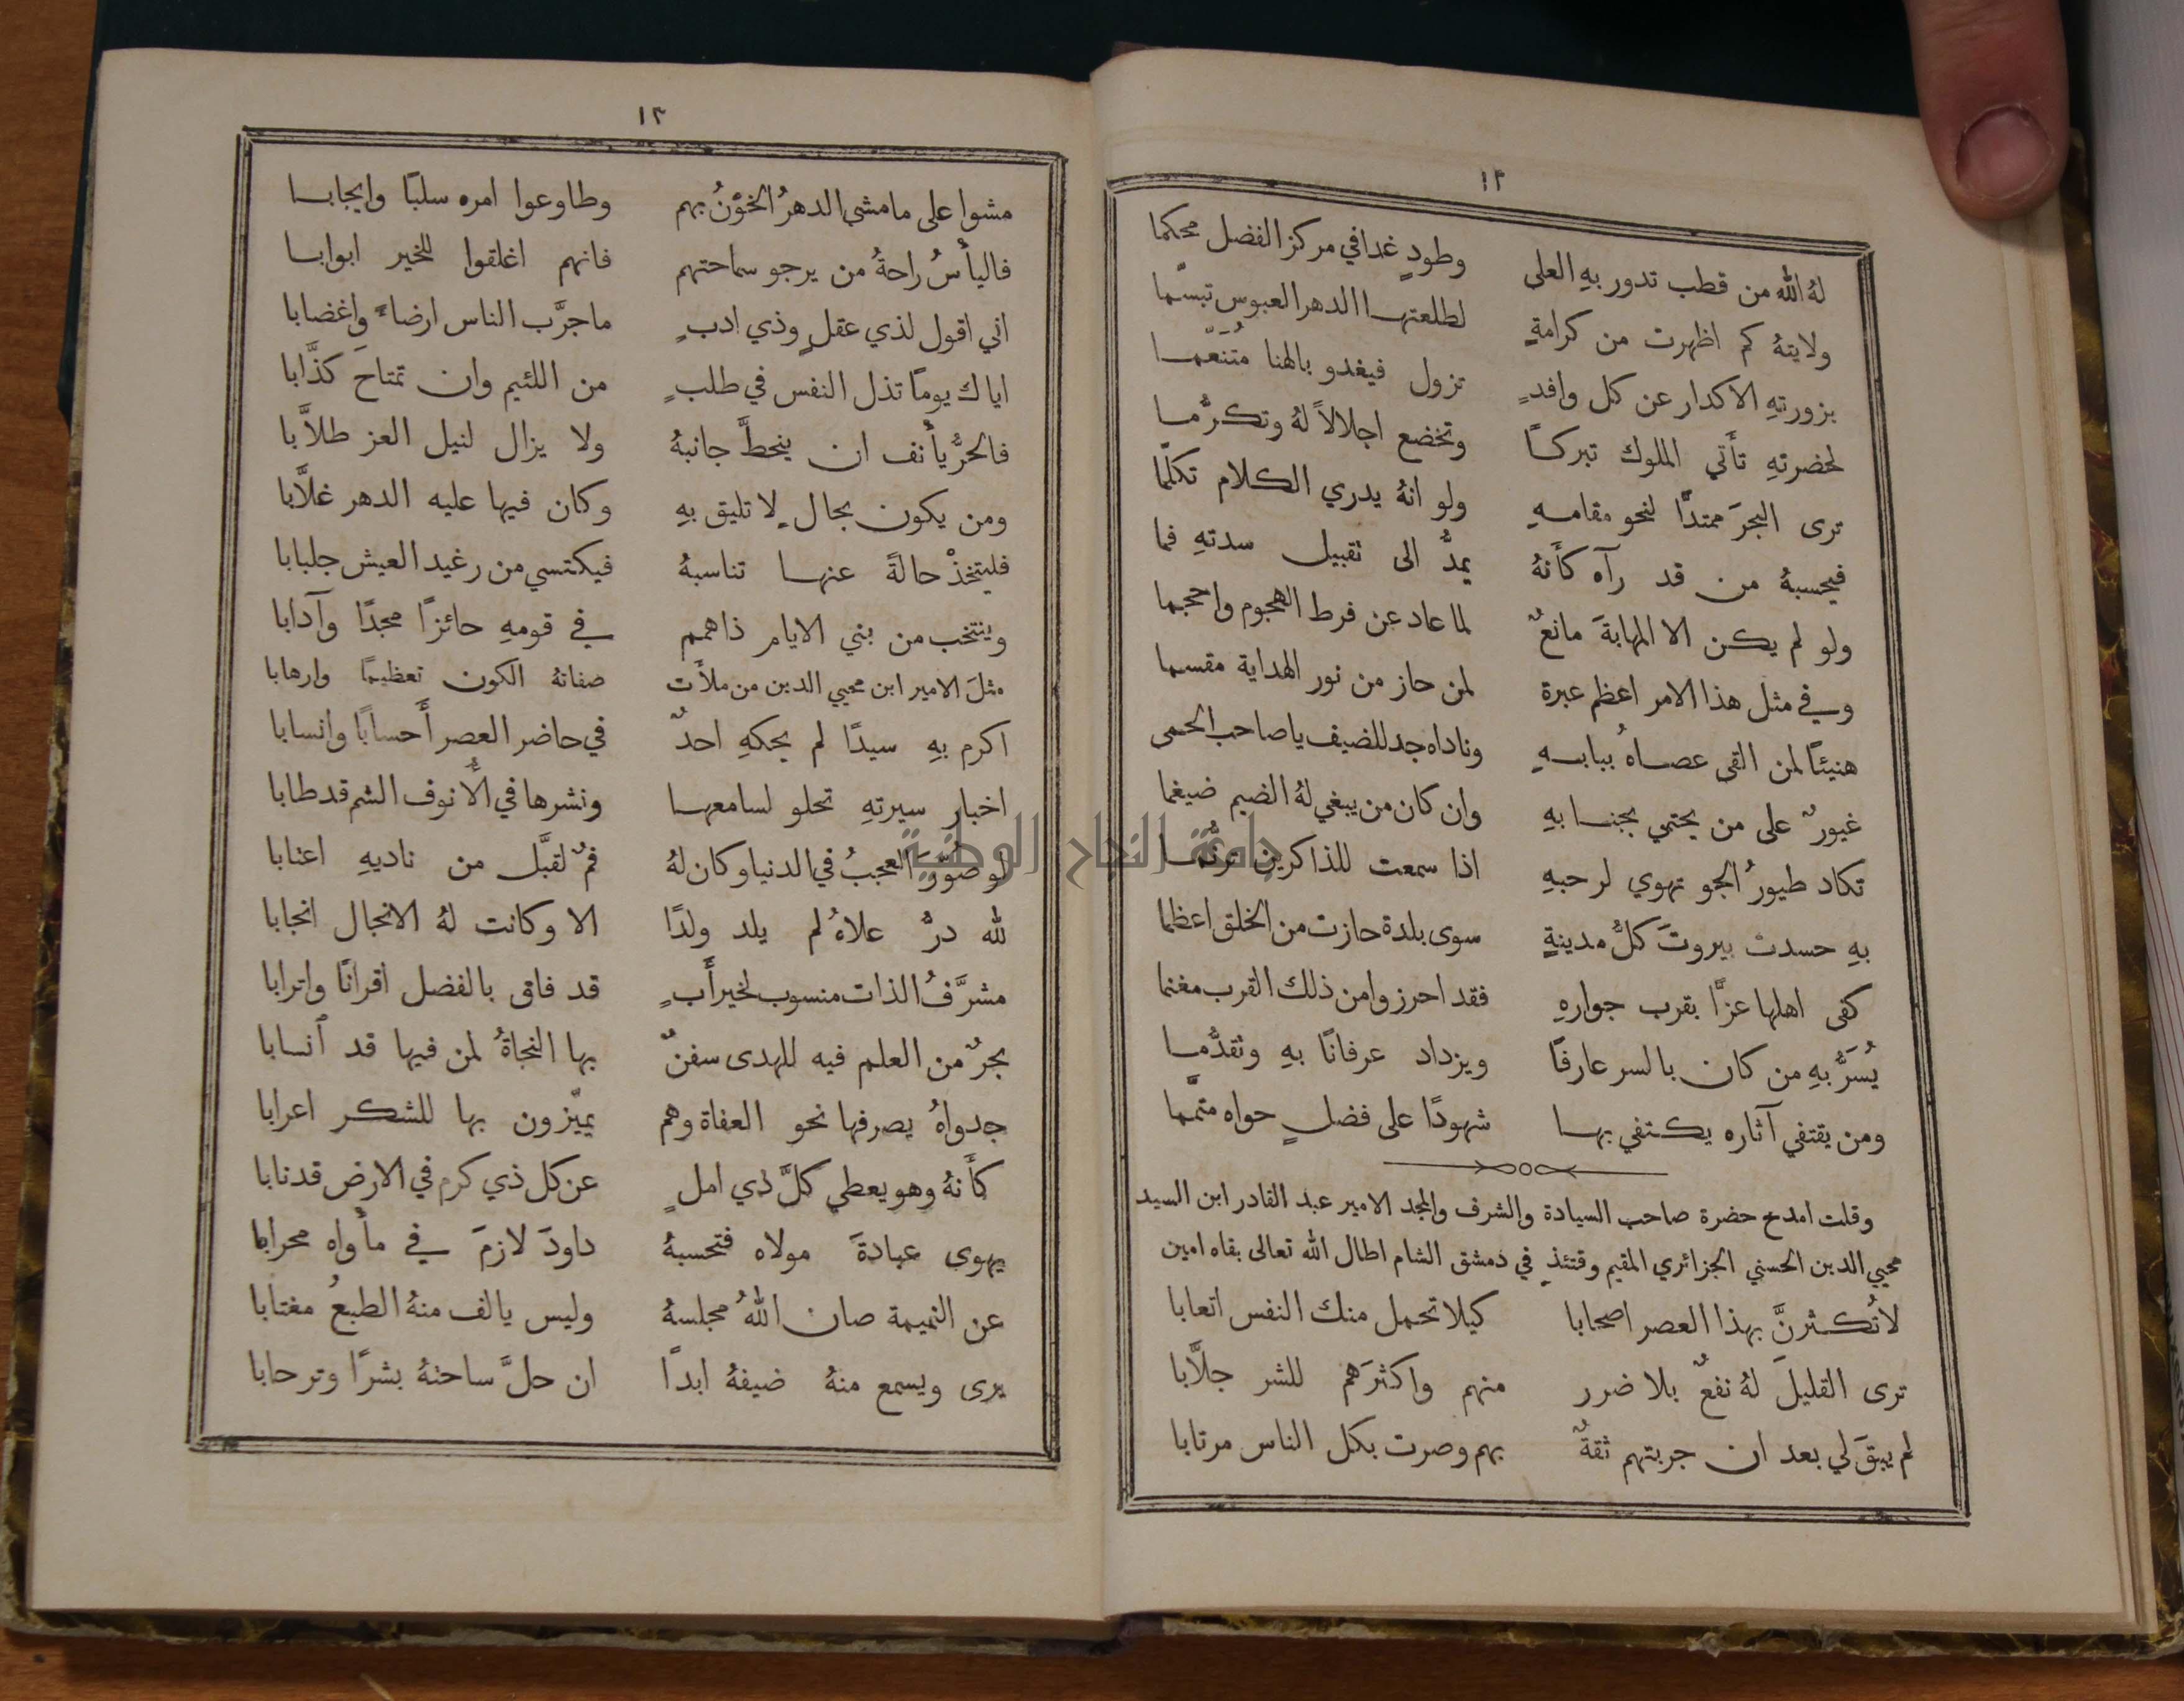 ١٢
لهُ الله من قطب تدور بهِ العلى وطودٍ غدا في مركز الفضل محكما
ولايتهُ كم اظهرت من كرامةٍ لطلعتها الدهر العبوس تبسّما
بزورتهِ الاكدار عن كل وافدٍ تزول فيغدو بالهنا مُتَنَعّما
لحضرتهِ تأتي الملوك تبركًا وتخضع اجلالاً لهُ وتكرُّما
ترى البحرَ ممتدًّا لنحو مقامهِ ولو انهُ يدري الكلام تكلَّما
فيحسبهُ من قد رآه كأَنهُ يمدُّ الى تقبيل سدتهِ فما
ولو لم يكن الا المهابةَ مانعٌ لما عاد عن فرط الهجوم واحجما
وفي مثل هذا الامر اعظم عبرة لمن حاز من نور الهداية مقسما
هنيئًا لمن القى عصاهُ ببابهِ وناداه جد للضيف يا صاحب الحمى
غيورٌ على من يحتمي بجنابهِ وان كان من يبغي لهُ الضيم ضيغما
تكاد طيورُ الجو تهوي لرحبهِ اذا سمعت للذاكرين ترنُّما
بهِ حسدت بيروتَ كلُّ مدينةٍ سوى بلدة حازت من الخلق اعظما
كفى اهلها عزًّا بقرب جوارهِ فقد احرزوا من ذلك القرب مغنما
يُسَرُّ بهِ من كان بالسر عارفًا ويزداد عرفانًا بهِ وتقدُّما
ومن يقتفي آثاره يكتفي بها شهودًا على فضلٍ حواه متمَّما
وقلت امدح حضرة صاحب السيادة والشرف والمجد الامير عبد القادر ابن السيد
محيي الدين الحسني الجزائري المقيم وقتئذٍ في دمشق الشام اطال الله تعالى بقاه امين
لا تُكثرنَّ بهذا العصر اصحابا كيلا تحمل منك النفس اتعابا
ترى القليلَ لهُ نفعٌ بلا ضرر منهم واكثرَهم للشر جلاَّبا
لم يبقَ لي بعد ان جربتهم ثقةٌ بهم وصرت بكل الناس مرتابا
١٣
مشوا على ما مشى الدهرُ الخوْنُ بهم وطاوعوا امره سلبًا وايجابا
فاليأسُ راحةُ من يرجو سماحتهم فانهم اغلقوا للخير ابوابا
اني اقول لذي عقلٍ وذي ادبٍ ما جرَّب الناس ارضاءً واغضابا
اياك يومًا تذل النفس في طلبٍ من اللئيم وان تمتاحَ كذَّابا
فالحرُّ يأنف ان ينحطَّ جانبهُ ولا يزال لنيل العز طلاَّبا
ومن يكون بحالٍ لا تليق بهِ وكان فيها عليه الدهر غلاَّبا
فليتخذْ حالةً عنها تناسبهُ فيكتسي من رغيد العيش جلبابا
وينتخب من بني الايام ذا همم في قومهِ حائزًا مجدًا وآدابا
مثلَ الامير ابن محيي الدين من ملأَت صفاتهُ الكون تعظيمًا وارهابا
اكرم بهِ سيدًا لم يحكهِ احدٌ في حاضر العصر أَحسابًا وانسابا
اخبار سيرتهِ تحلو لسامعها ونشرها في الأُنوف الشم قد طابا
لو صُوّرَ العجبُ في الدنيا وكان لهُ فمٌ لقبَّل من ناديهِ اعتابا
لله درُّ علاهُ لم يلد ولدًا الا وكانت لهُ الانجال انجابا
مشرَّفُ الذات منسوب لخير أَبٍ قد فاق بالفضل اقرانًا واترابا
بحرٌ من العلم فيه للهدى سفنٌ بها النجاةُ لمن فيها قد انسابا
جدواهُ يصرفها نحو العفاة وهم يميّزون بها للشكر اعرابا
كأَنهُ وهو يعطي كلَّ ذي املٍ عن كل ذي كرم في الارض قد نابا
يهوى عبادةَ مولاه فتحسبهُ داودَ لازمَ في مأواه محرابا
عن النميمة صان اللهُ مجلسهُ وليس يالف منهُ الطبعُ مغتابا
يرى ويسمع منهُ ضيفهُ ابدًا ان حلَّ ساحتهُ بشرًا وترحابا
جامعة النجاح الوطنية